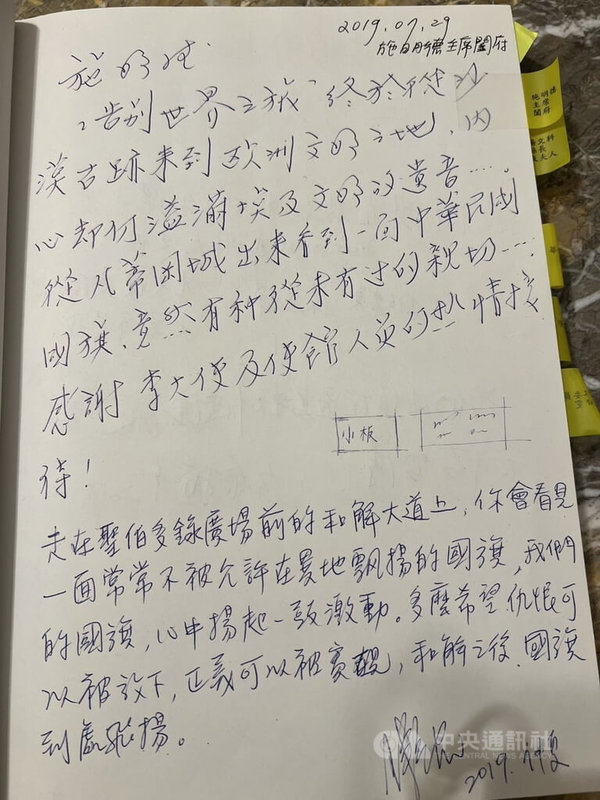 2019.07.29
施明德主席闔府
施明德
"告別世界之旅"終於從沙
漠古跡來到歐洲文明之地，內
心却仍溢滿埃及文明的遺音…。
從八蒂岡城出來看到一面中華民國
國旗，竟然有种從未有过的親切…
感謝李大使及使館人员的热情接
待！
小板
走在聖伯多錄廣場前的和解大道上，你會看見
一面常常不被允許在異地飄揚的國旗，我們
的國旗，心中揚起一鼓激動。多麼希望仇恨可
以被放下，正義可以被實現，和解之後，國旗
到處飛揚。
2019.
施明德
主席
闔府
夫人
中央通訊社
CENTRAL NEWS AGENCY